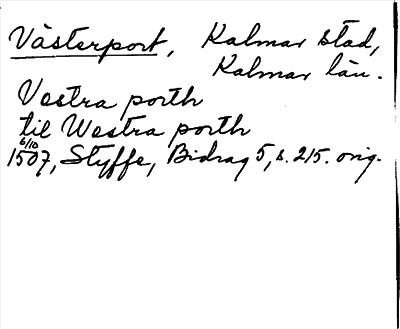 Västerport, Kalmar stad,
Kalmar län.
Vestra porth
til Westra porth
6/10
1507, Styffe, Bidrag 5, s. 215. orig.